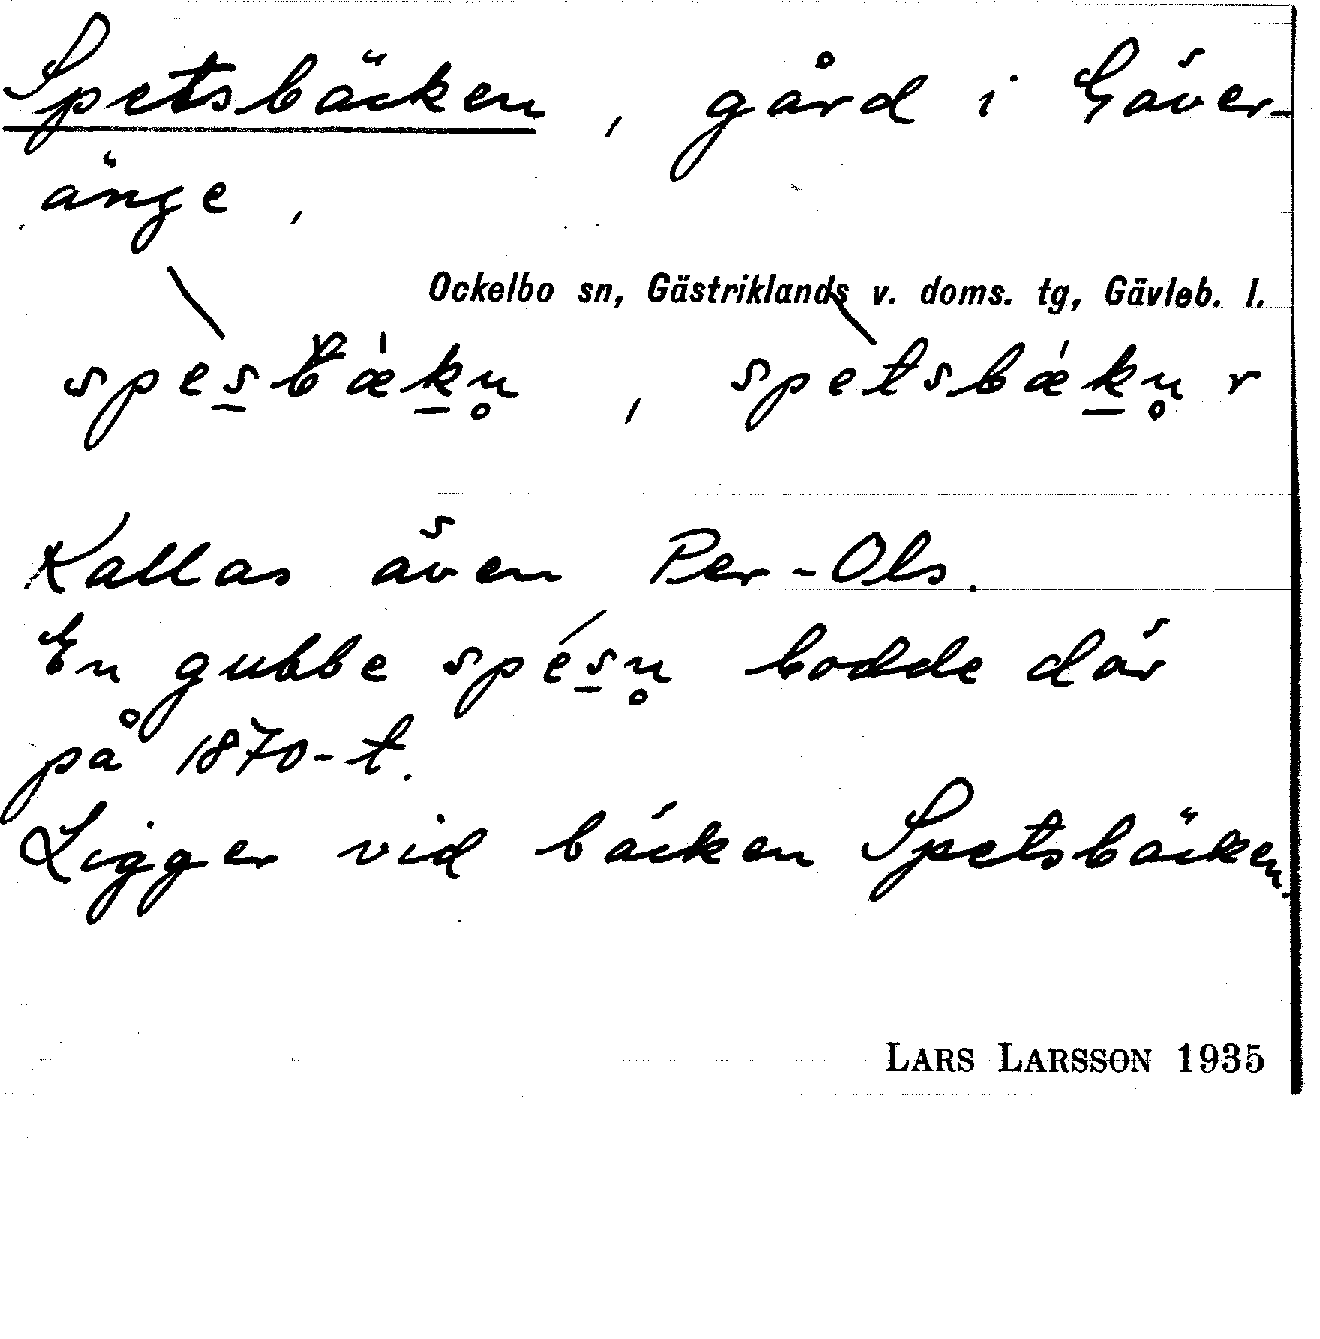 Spetsbäcken, gård i Gäver-
änge,
Ockelbo sn, Gästriklands v. doms. tg, Gävleb. l.
spès̲bæ̍k̲n̥, spètsbǽk̲n̥ r
Kallas även Per-Ols.
En gubbe spés̲n̥ bodde där
på 1870-t.
Ligger vid bäcken Spetsbäcken.
LARS LARSSON 1935